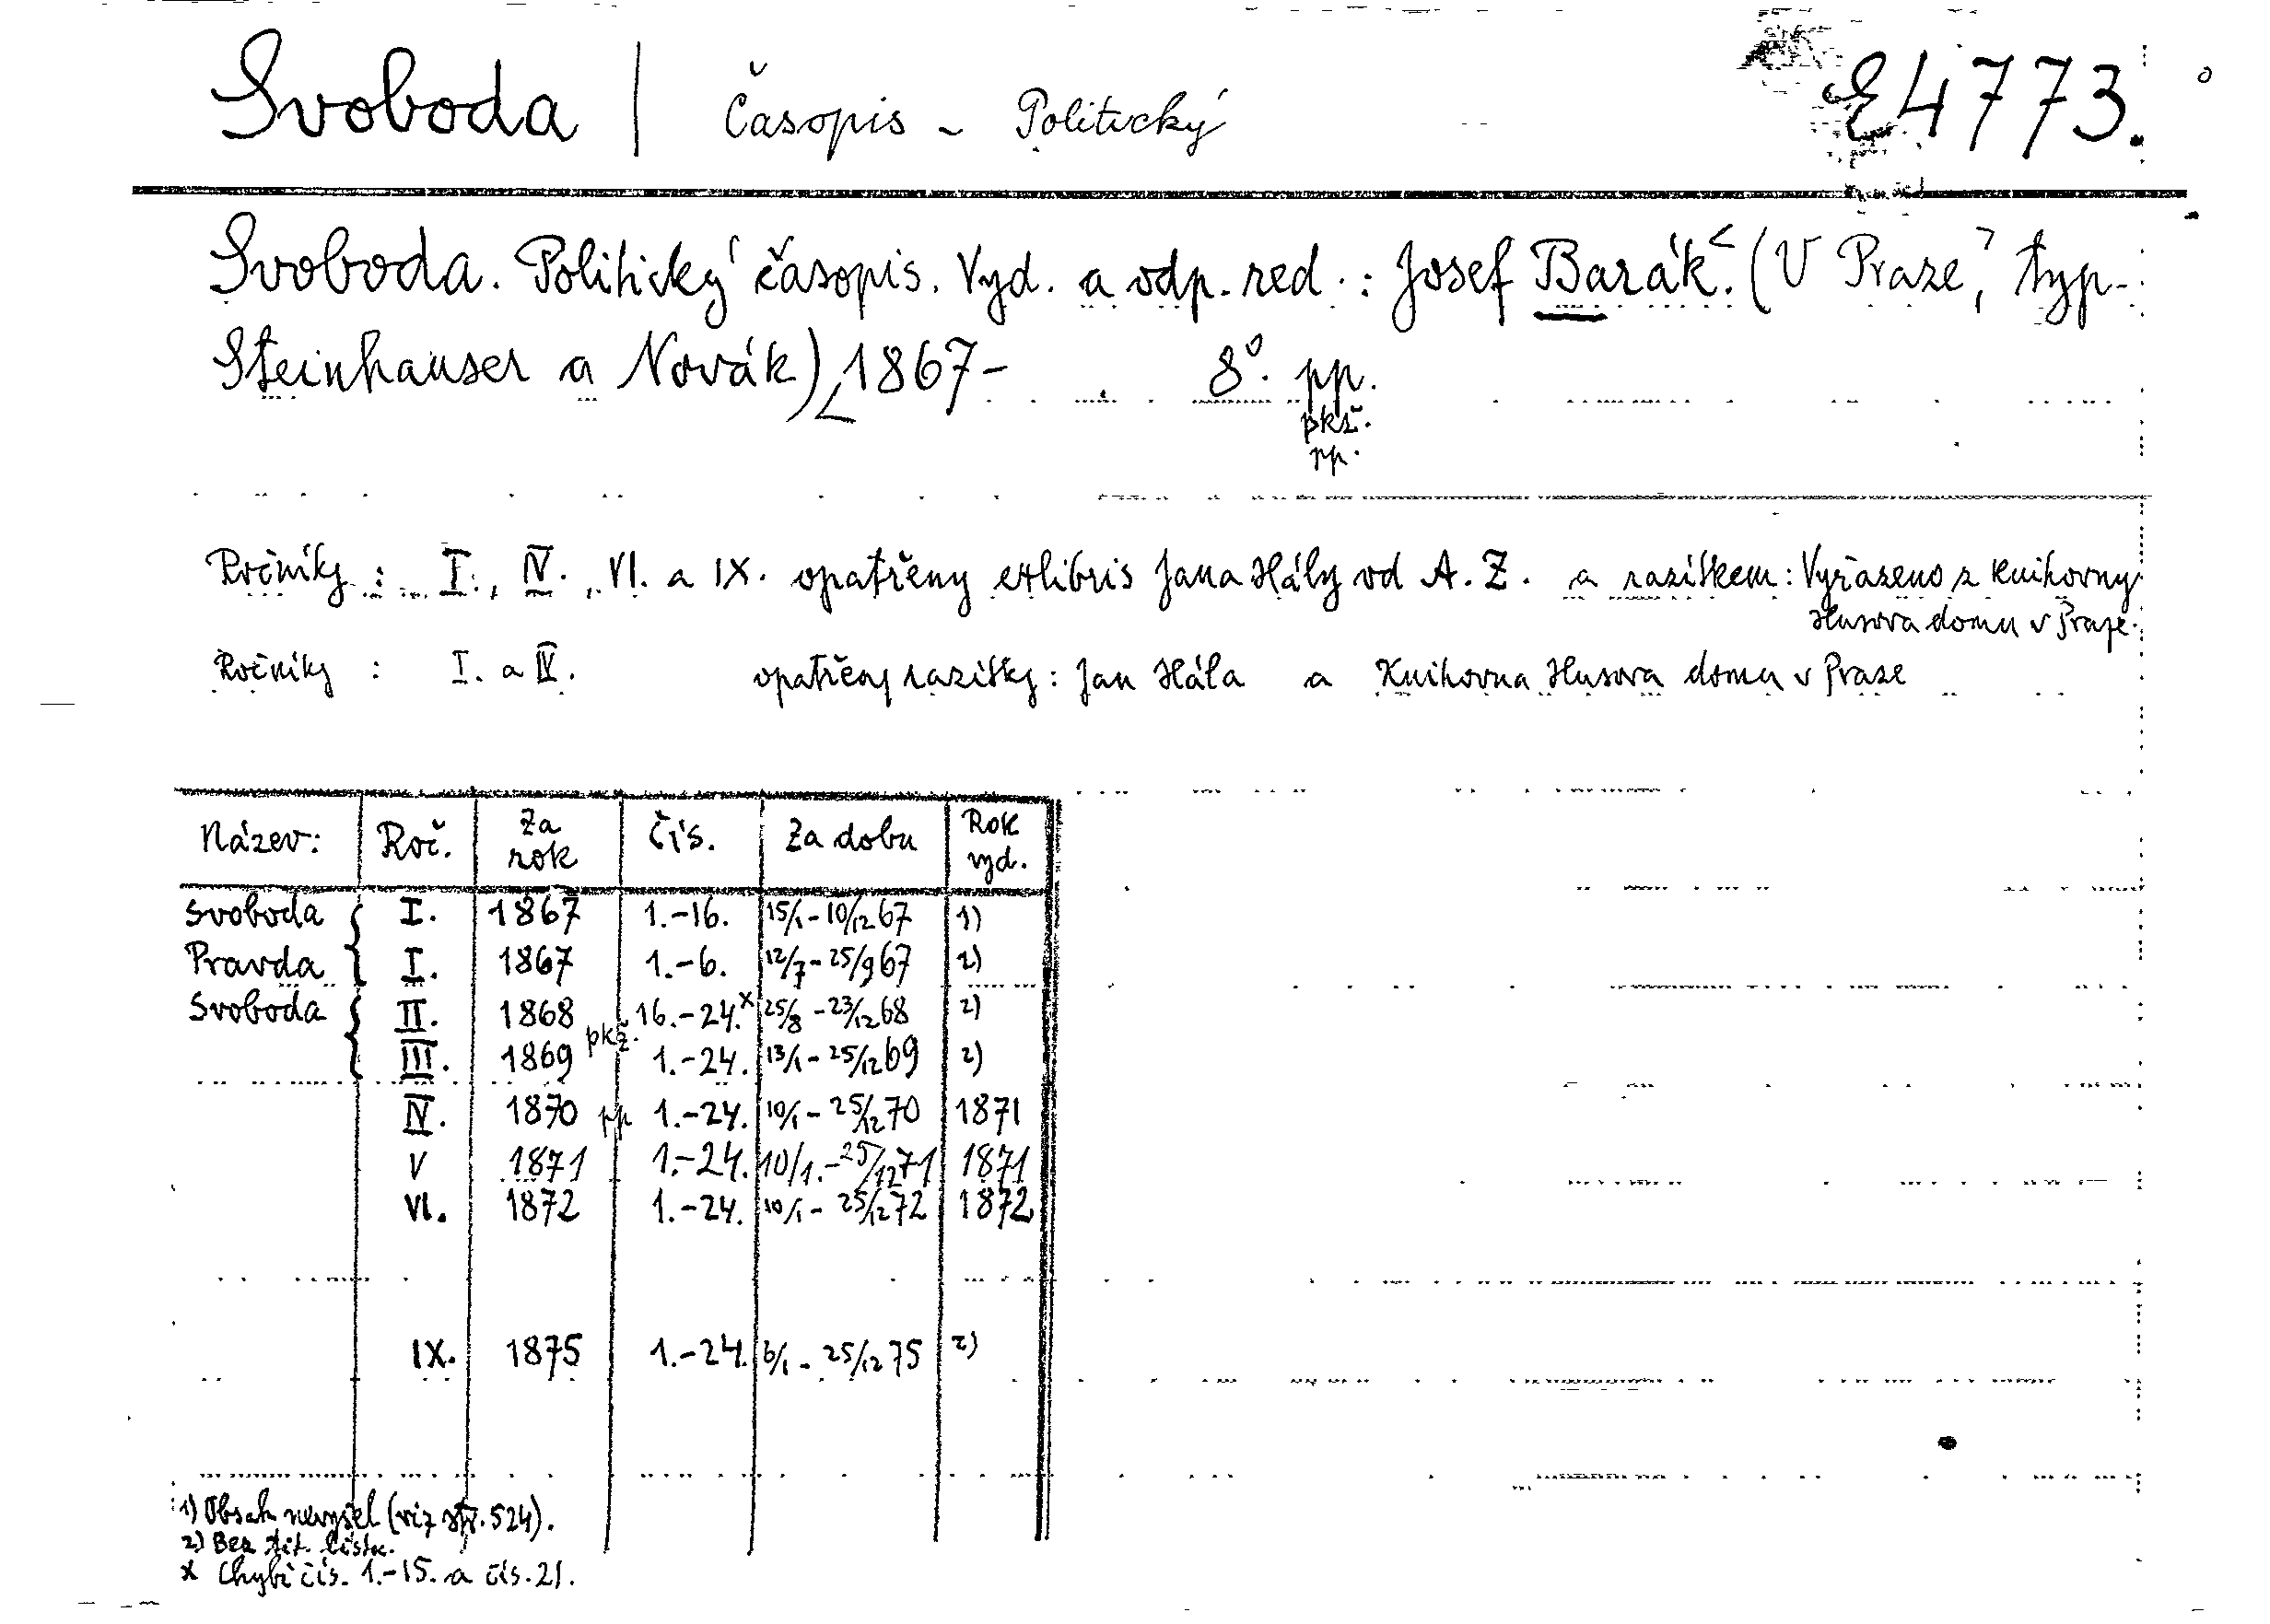 Svoboda | Časopis - Politický E 4773.
Svoboda. Politický časopis. Vyd. a odp. red.: Josef Barák. (V Praze, typ.
Steinhauser a Novák) 1867- 8°. pp.
pkž.
pp.
Ročníky: I., IV., VI. a IX. opatřeny exlibris Jana Hály od A. Z. a razítkem: Vyřazeno z knihovny
Husova domu v Praze.
Ročníky: I. a IV. opatřeny razítky: Jan Hála a Knihovna Husova domu v Praze
Název: Roč. Za rok Čís. Za dobu Rok vyd.
Svoboda I. 1867 1.-16. 15/1-10/12 67 1)
Pravda I. 1867 1.-6. 12/7-25/9 67 2)
Svoboda II. 1868 16.-24.x 25/8-23/12 68 2)
III. 1869 pkž. 1.-24. 13/1-25/12 69 2)
IV. 1870 pp 1.-24. 10/1-25/12 70 1871
V 1871 1.-24. 10/1.-25/12 71 1871
VI. 1872 1.-24. 10/1-25/12 72 1872
IX. 1875 1.-24. 6/1-25/12 75 2)
1) Obsah nevyšel (viz str. 524).
2) Bez tit. listu.
x Chybí čís. 1.-15. a čís. 21.